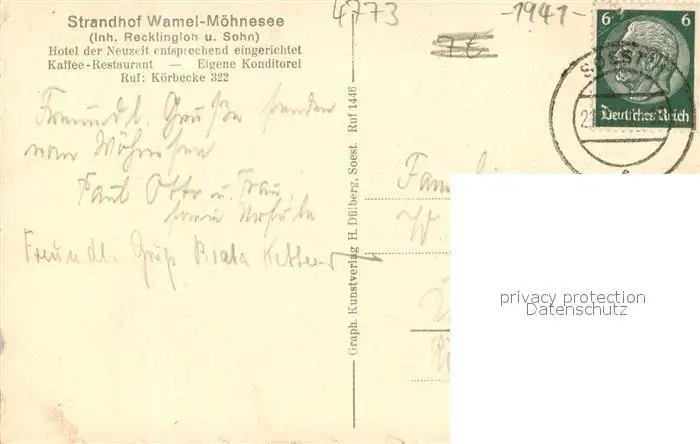 Strandhof Wamel-Möhnesee
(Inh. Recklingloh u. Sohn)
Hotel der Neuzeit entsprechend eingerichtet
Kaffee-Restaurant — Eigene Konditorei
Ruf: Körbecke 322
4773
-1941-
6 6
Deutsches Reich
SOEST
Freundl. Grüße senden
vom Möhnesee
Paul Otto u. Frau
Freundl. Grüß Beata
Graph. Kunstverlag H. Dülberg, Soest. Ruf 1446
Famili
W.
privacy protection
Datenschutz